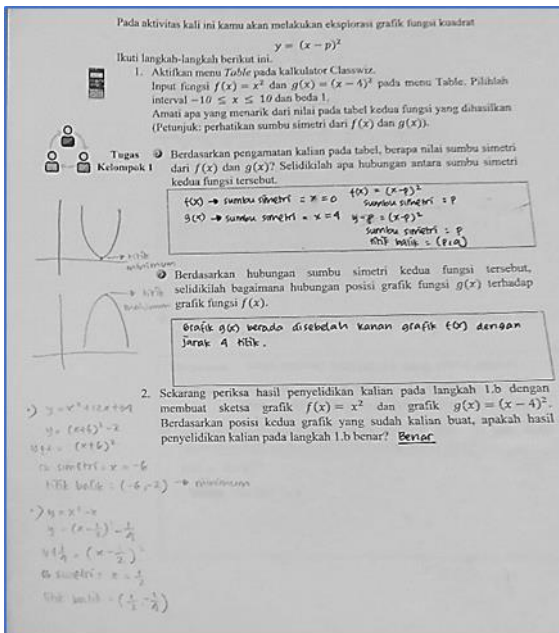 Pada aktivitas kali ini kamu akan melakukan eksplorasi grafik fungsi kuadrat
y = (x − p)²
Ikuti langkah-langkah berikut ini.
1. Aktifkan menu Table pada kalkulator Classwiz.
Input fungsi f(x) = x² dan g(x) = (x − 4)² pada menu Table. Pilihlah
interval −10 ≤ x ≤ 10 dan beda 1.
Amati apa yang menarik dari nilai pada tabel kedua fungsi yang dihasilkan
(Petunjuk: perhatikan sumbu simetri dari f(x) dan g(x)).
Tugas
Kelompok 1
Berdasarkan pengamatan kalian pada tabel, berapa nilai sumbu simetri
dari f(x) dan g(x)? Selidikilah apa hubungan antara sumbu simetri
kedua fungsi tersebut.
f(x) → sumbu simetri = x = 0
g(x) → sumbu simetri = x = 4
f(x) = (x-p)²
sumbu simetri : p
y-q = (x-p)²
sumbu simetri : p
titik balik : (p,q)
titik
minimum
Berdasarkan hubungan sumbu simetri kedua fungsi tersebut,
selidikilah bagaimana hubungan posisi grafik fungsi g(x) terhadap
grafik fungsi f(x).
titik
Grafik g(x) berada disebelah kanan grafik f(x) dengan
jarak 4 titik.
2. Sekarang periksa hasil penyelidikan kalian pada langkah 1.b dengan
membuat sketsa grafik f(x) = x² dan grafik g(x) = (x − 4)².
Berdasarkan posisi kedua grafik yang sudah kalian buat, apakah hasil
penyelidikan kalian pada langkah 1.b benar? Benar
y = (x+6)² - 2
y+2 = (x+6)²
simetri = x = -6
titik balik = (-6,-2) → minimum
y = x² - x
y = (x-1/2)² - 1/4
y+1/4 = (x-1/2)²
simetri = x = 1/2
titik balik = (1/2, -1/4)